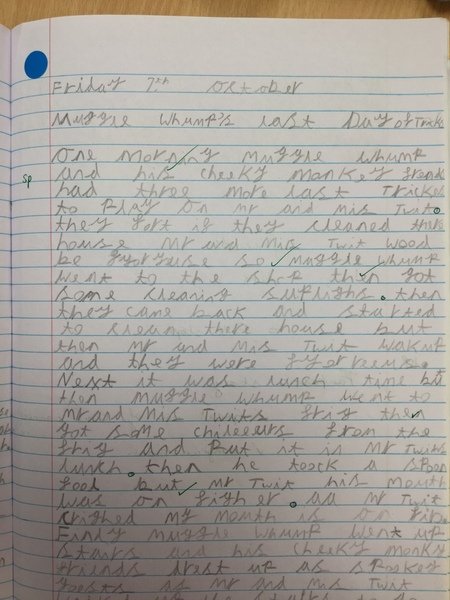 Friday 7th October
Muggle Whump's last Day of Tricks
One morning muggle whump
sp and his cheeky monkey friends
had three more last trickes
to play on mr and mis Twit.
they fort if they cleaned
house mr and Mis Twit wood
be so muggle whump
went to the shop then got
some cleaning suplighs. then
they came back and started
to clean there house but
then mr and mis Twit wakup
and they were
Next it was lunch time but
then muggle whump went to
mr and mis Twits frig then
got some chileeers from the
frig and put it is mr twits
lunch. then he toock a spoon
fool but mr Twit his mouth
was on figher. aa mr twit
crighed my mouth is on
Findy muggle whump went up
stairs and his cheeky monky
friends drest up as spookey
gosts as mr and mis Twit